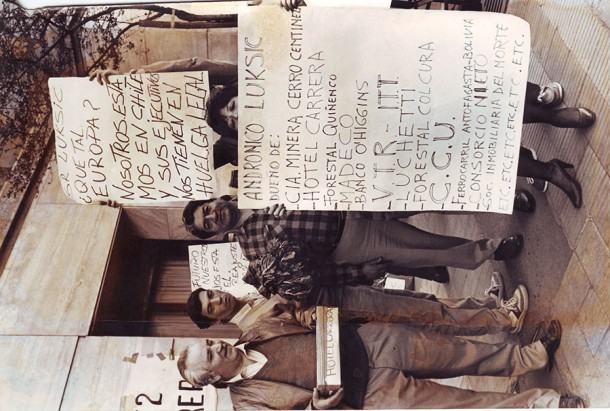 R LUKSIC
¿QUE TAL
EUROPA?
NOSOTROS ESTA
MOS EN CHILE
Y SUS EJECUTIVOS
NOS TIENEN EN
HUELGA LEGAL
ANDRONICO LUKSIC
DUEÑO DE:
CIA. MINERA CERRO CENTINEL
-HOTEL CARRERA
-FORESTAL QUINENCO
-MADECO
-BANCO O'HIGGINS
-V.T.R - ITT
-LUCHETTI
-FORESTAL COLCURA
-C.C.U.
-FERROCARRIL ANTOFAGASTA-BOLIVIA
CONSORCIO NIETO
SOC. INMOBILIARIA DEL NORTE
ETC. ETC ETC ETC ETC. ETC. ETC.
FUTURO
NUESTRO
NOS ESTA
EL
HOTEL
2
RE